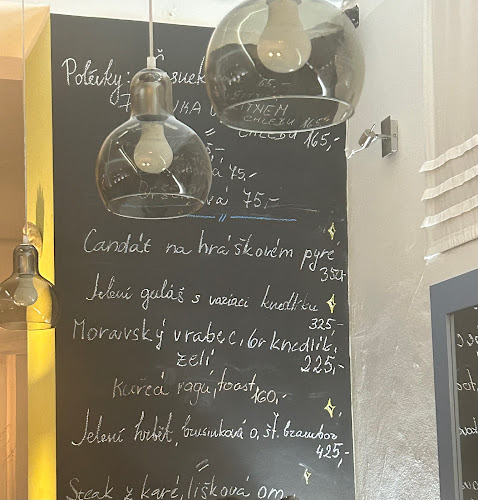 Polévky:
65,-
CHLEBU 165,-
CHLEBU 165,-
75,-
75,-
Candát na hráškovém pyré
350,-
Jelení guláš s variací knedlíku
325,-
Moravský vrabec, br knedlík,
zelí 225,-
Kuřecí ragú, toast, 160,-
Jelení hřbět, brusinková o, šť. brambor
425,-
Steak z karé, lišková om.